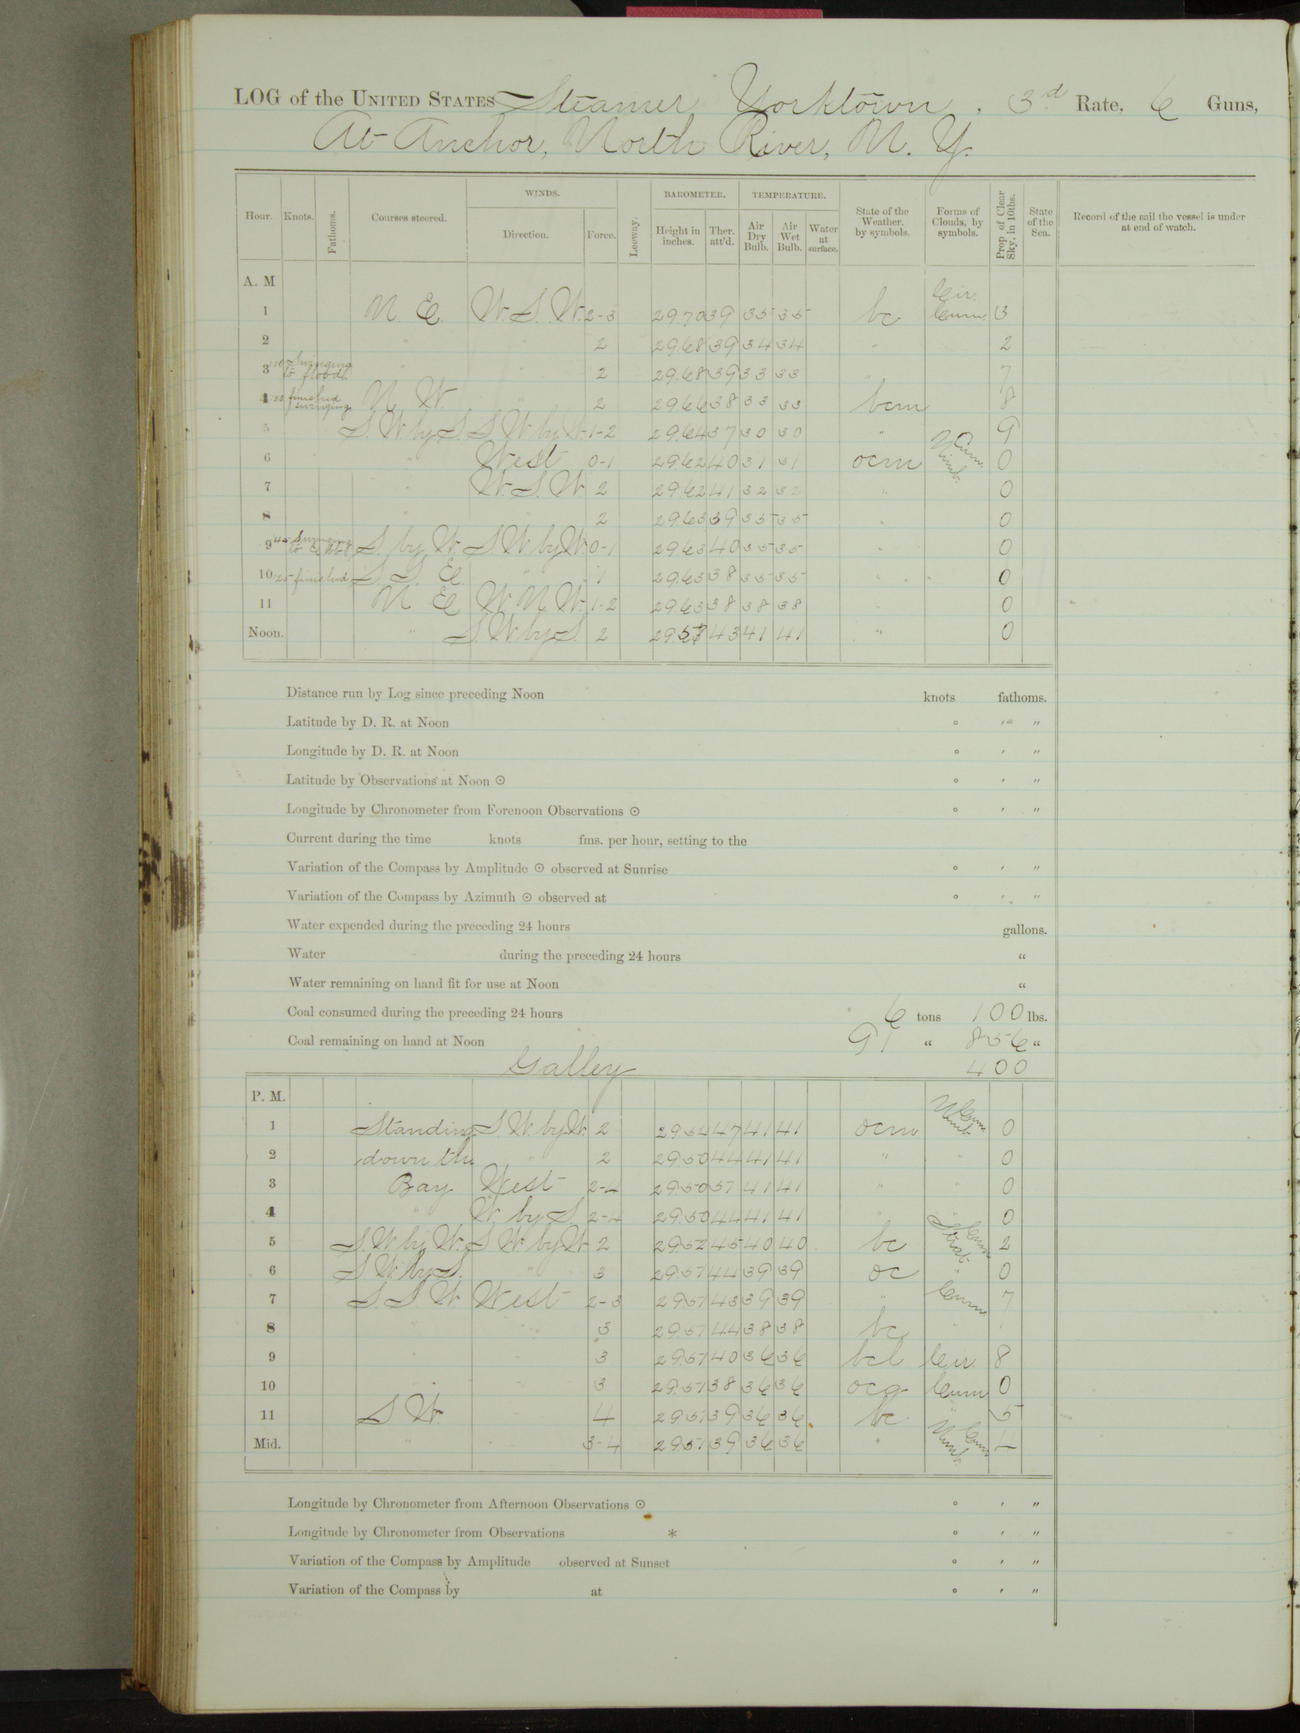 LOG of the UNITED STATES Steamer Yorktown. 3rd Rate, 6 Guns,
At Anchor, North River, N. Y.
Hour. Knots. Fathoms. Courses steered. WINDS. Direction. Force. Leeway. BAROMETER. Height in inches. Ther. att'd. TEMPERATURE. Air Dry Bulb. Air Wet Bulb. Water at surface. State of the Weather, by symbols. Forms of Clouds, by symbols. Prop. of Clear Sky, in 10ths. State of the Sea. Record of the sail the vessel is under at end of watch.
A. M
1 N. E. W. S. W. 2-3 29.70 39 35 35 bc Cir. Cum 3
2 " " 2 29.68 39 34 34 " 2
3 Swinging to flood " " 2 29.68 39 33 33 " 7
4 finished swinging N. W. 2 29.66 38 33 33 bcm 8
5 S. W by S. S. W by S. 1-2 29.64 37 30 30 " 9
6 " West 0-1 29.62 40 31 31 ocm Cum. Nimb. 0
7 " W. S. W. 2 29.62 41 32 32 " 0
8 2 29.63 39 35 35 " 0
9 S. by W. S W by W. 0-1 29.63 40 35 35 " 0
10 25 finished S. S. E. " 1 29.63 38 35 35 " " 0
11 N E W N W. 1-2 29.63 38 38 38 " 0
Noon. " S. W by S. 2 29.57 43 41 41 " 0
Distance run by Log since preceding Noon knots fathoms.
Latitude by D. R. at Noon ° ' "
Longitude by D. R. at Noon ° ' "
Latitude by Observations at Noon ⊙ ° ' "
Longitude by Chronometer from Forenoon Observations ⊙ ° ' "
Current during the time knots fms. per hour, setting to the
Variation of the Compass by Amplitude ⊙ observed at Sunrise ° ' "
Variation of the Compass by Azimuth ⊙ observed at ° ' "
Water expended during the preceding 24 hours gallons.
Water during the preceding 24 hours "
Water remaining on hand fit for use at Noon "
Coal consumed during the preceding 24 hours 6 tons 100 lbs.
Coal remaining on hand at Noon 91 " 856 "
Galley 400
P. M.
1 Standing S W by W. 2 29.52 47 41 41 ocm Cum Nimb 0
2 down the " 2 29.50 44 41 41 " " 0
3 Bay West 2-4 29.50 57 41 41 " " 0
4 " W. by S. 2-4 29.50 44 41 41 " " 0
5 S. W by W. S W by W. 2 29.52 45 40 40 bc Cum Strat. 2
6 S W by S. " 3 29.57 44 39 39 oc " 0
7 S. S W. West 2-3 29.57 43 39 39 " Cum 7
8 " " 3 29.57 44 38 38 bc "
9 " " 3 29.57 40 36 36 bcl Cir. 8
10 " " 3 29.57 38 36 36 ocq Cum 0
11 S W. 4 29.57 39 36 36 bc " 5
Mid. " " 3-4 29.57 39 36 36 " Cum Nimb.
Longitude by Chronometer from Afternoon Observations ⊙ ° ' "
Longitude by Chronometer from Observations * ° ' "
Variation of the Compass by Amplitude observed at Sunset ° ' "
Variation of the Compass by at ° ' "